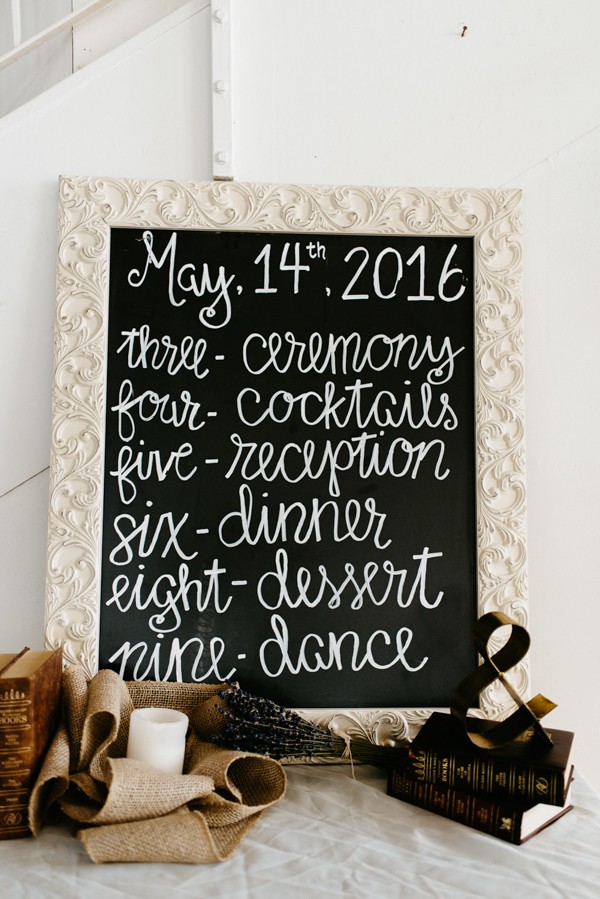 May, 14th, 2016
three - ceremony
four - cocktails
five - reception
six - dinner
eight - dessert
nine - dance
&
BOOKS
BOOKS